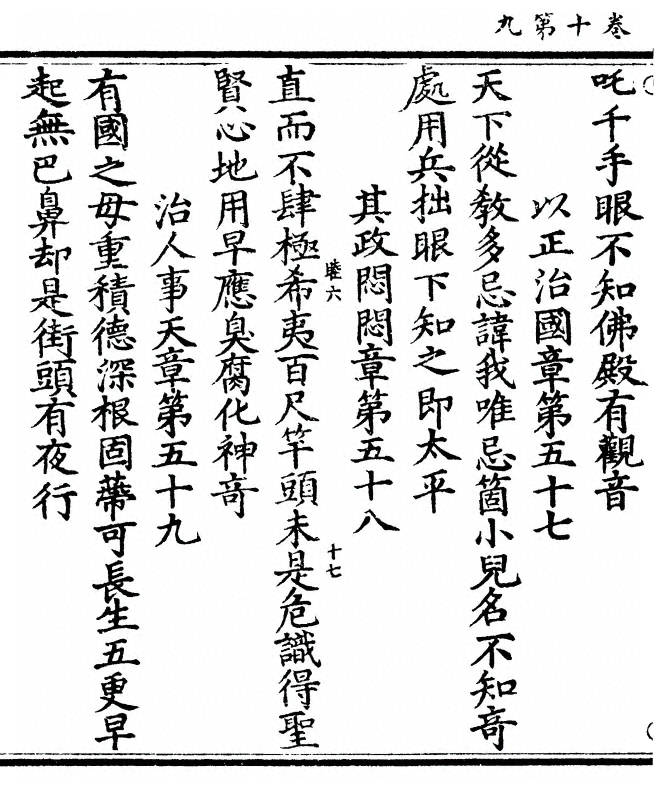 卷十第九
吒千手眼不知佛殿有觀音
以正治國章第五十七
天下從教多忌諱我唯忌箇小兒名不知竒
處用兵拙眼下知之即太平
其政悶悶章第五十八
睦六
十七
直而不肆極希夷百尺竿頭未是危識得聖
賢心地用早應臭腐化神竒
治人事天章第五十九
有國之母重積德深根固蔕可長生五更早
起無巴鼻却是街頭有夜行